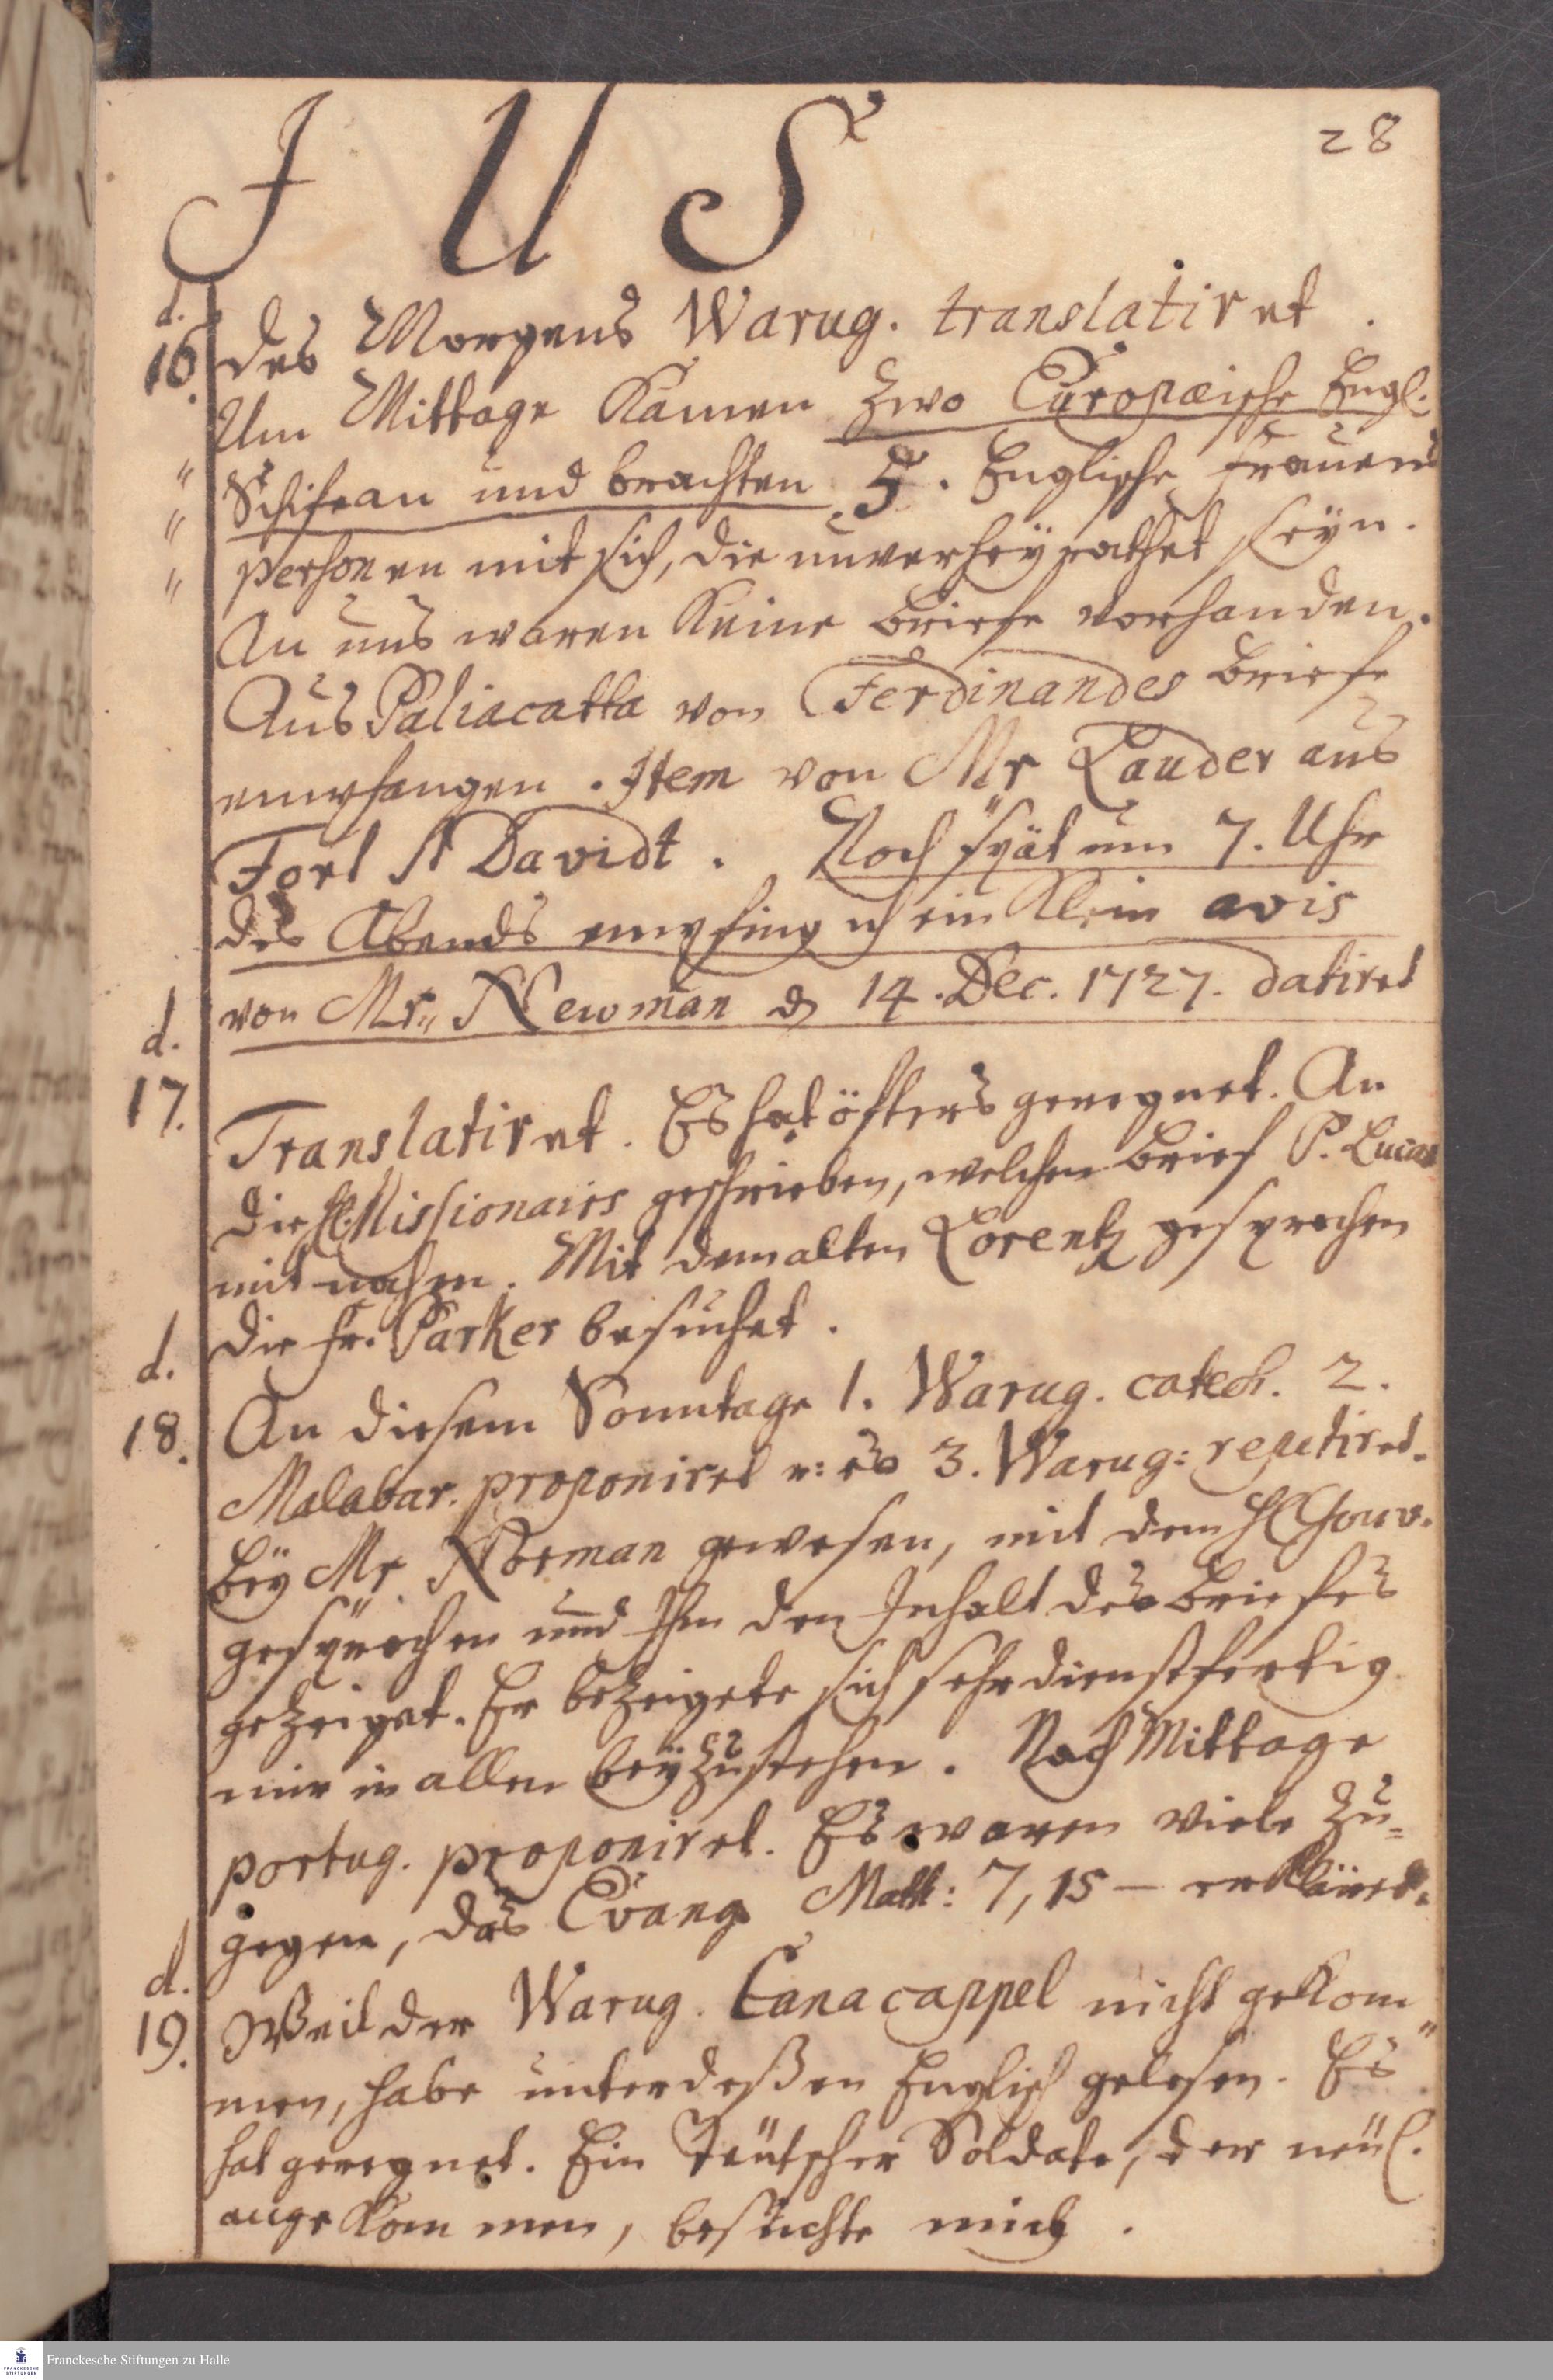 J U S
28
d. 16. des Morgens Warug. translatiret.
Um Mittage kamen zwo Europæische Engl.
" Schife an und brachten 5. Englische Frauens
" personen mit sich, die unverheÿrathet seÿn.
" An uns waren keine briefe vorhanden.
Aus Paliacatta von Ferdinandes briefe
empfangen. Item von Mr Lauder aus
Fort St Davidt. Noch spät um 7. Uhr
des Abends empfing ich ein klein avis
von Mr. Newman d 14. Dec. 1727. datiret
d. 17. Translatiret. Es hat öfters geregnet. An
die H. Missionairs geschrieben, welchen brief P. Lucas
mit nahm. Mit dem alten Lorentz gesprochen
die Fr. Parker besuchet.
d. 18. An diesem Sonntage 1. Warug. catech. 2.
Malabar. proponiret u: es 3. Warug: repetiret.
beÿ Mr Norman gewesen, mit dem H Gouv.
gesprochen und Ihm den Inhalt des briefes
gezeiget. Er bezeigete sich sehr dienstfertig
mir in allen beÿzustehen. Nach Mittage
portug. proponiret. Es waren viele zu=
gegen, das Evang. Matth: 7, 15 — erkläret.
d. 19. Weil der Warug. Canacappel nicht gekom"
men, habe unterdeßen Englisch gelesen. Es
hat geregnet. Ein Teütscher Soldate, der neül.
angekommen, besuchte mich.
FRANCKESCHE STIFTUNGEN
Franckesche Stiftungen zu Halle